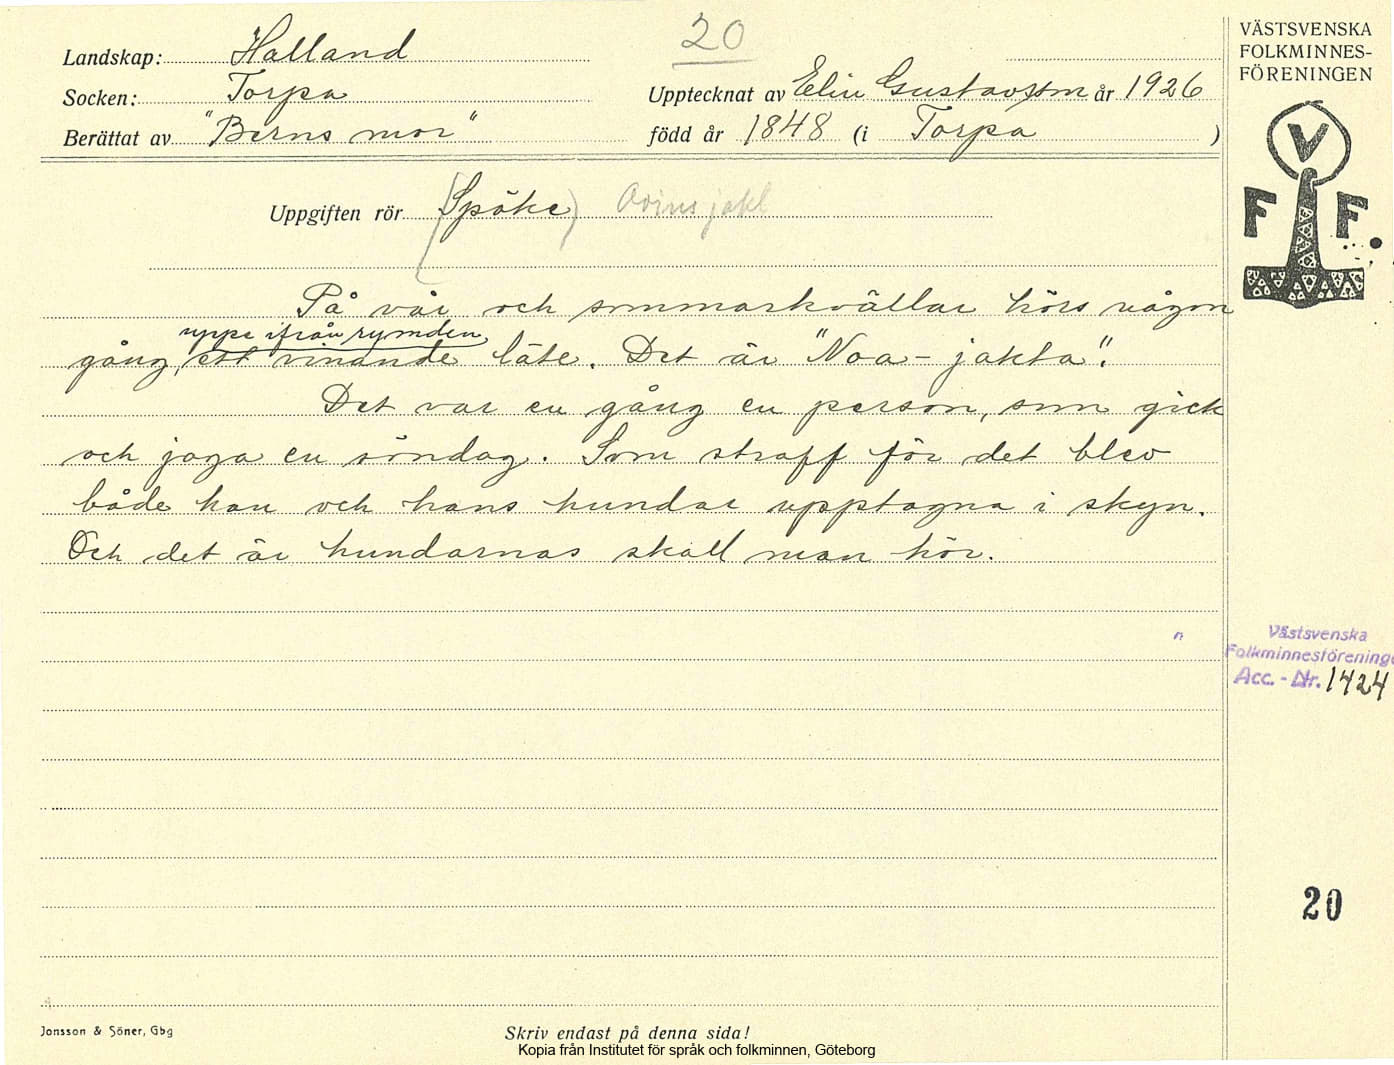 20
Landskap: Halland
Socken: Torpa
Upptecknat av Elin Gustavsson år 1926
Berättat av "Berns mor"
född år 1848 (i Torpa )
VÄSTSVENSKA
FOLKMINNES-
FÖRENINGEN
V
F F
Uppgiften rör (Spöke) Odins jakt
På vår och sommarkvällar hörs någon
uppe ifrån rymden
gång, ett vinande läte. Det är "Noa-jakta".
Det var en gång en person, som gick
och jaga en söndag. Som straff för det blev
både han och hans hundar upptagna i skyn.
Och det är hundarnas skall man hör.
Västsvenska
Folkminnesföreninge
Acc.-Nr. 1424
20
Jonsson & Söner, Gbg
Skriv endast på denna sida!
Kopia från Institutet för språk och folkminnen, Göteborg